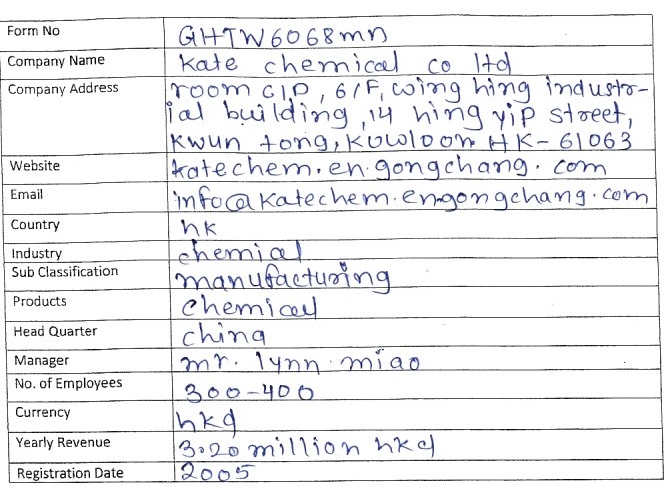 Form No GHTW6068mn
Company Name kate chemical co ltd
Company Address room G1D, 6/F, wing hing industr-
ial building, 14 hing yip street,
kwun tong, kowloon HK-61063
Website katechem.en.gongchang.com
Email info@katechem.en.gongchang.com
Country hk
Industry chemial
Sub Classification manufacturing
Products chemical
Head Quarter china
Manager mr. lynn miao
No. of Employees 300-400
Currency hkd
Yearly Revenue 3.20 million hkd
Registration Date 2005